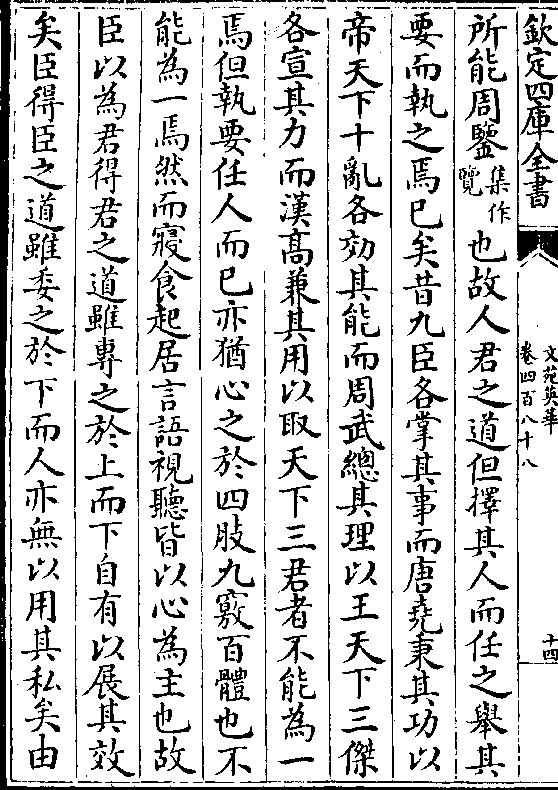 欽定四庫全書
文苑英華
卷四百八十八
十四
所能周鑒集作覽也故人君之道但擇其人而任之舉其
要而執之焉已矣昔九臣各掌其事而唐堯秉其功以
帝天下十亂各効其能而周武總其理以王天下三傑
各宣其力而漢髙兼其用以取天下三君者不能為一
焉但執要任人而已亦猶心之於四肢九竅百體也不
能為一焉然而寢食起居言語視聽皆以心為主也故
臣以為君得君之道雖専之於上而下自有以展其效
矣臣得臣之道雖委之於下而人亦無以用其私矣由